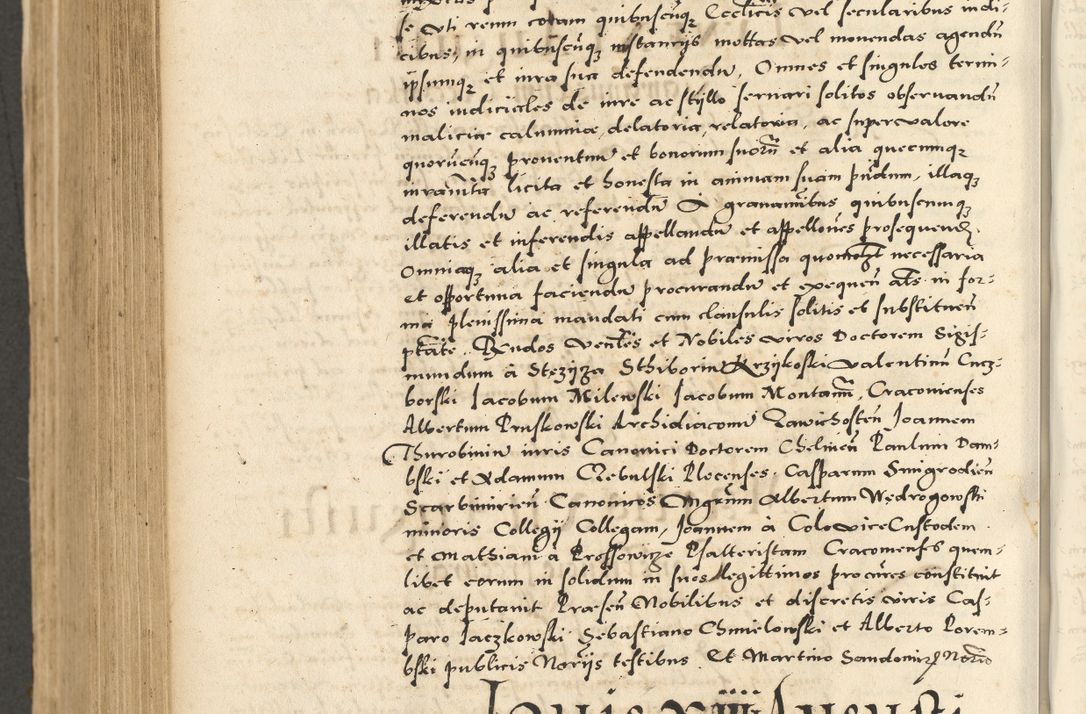 se uti reum coram quibuscunq Ecclicis vel secularibus iudi-
cibus, in quibuscūq instantijs mottas vel mouendas agendū
ipsumq et iura sua defendendū, Omnes et singulos termi-
nos iudiciales de iure ac styllo seruari solitos obseruandū
maliciæ calumniæ, delatoria, relatoria, ac super valore
quorūcūq prouentuū et bonorum suorū et alia quecunq
iuramēta licita et honesta in animam suam prædum, illaq
deferendū ac referendū A grauamībus quibuscunq
illatis et inferendis appellandū et appellōnes prosequend.
Omniaq alia et singula ad præmissa quomolt necessaria
et opportuna faciendū procurandū et exequeñ Als in for-
ma plenissima mandati cum clausulis solitis et substitueñ
ptāte. Rndos Ventes et Nobiles viros Doctorem Sigis-
mundum à Stęzÿza Sthiborium Krzÿkoski Valentinū Cucz-
borski Jacobum Milewski Jacobum Montanū, Cracouienses
Albertum Pruskowski Archidiaconū Zawichosteñ Joannem
Thurobiniū iuris Canonici Doctorem Chelmeñ Paulum Dam-
bski et Adamum Czebulski Plocenses. Casparum Smigrodieñ
Scarbimirieñ Canonicos Mgrum Albertum Wędrogowski
minoris Collegij Collegam, Joannem à Colo viceCustodem
et Mathiam à Prossowicze Psalteristam Cracouienses quem-
libet eorum in solidum in suos legittimos procūres constituit
ac deputauit Præseñ Nobilibus et discretis viris Cas-
paro Jaczkowski Sebastiano Chmielowski et Alberto Porem-
bski publicis Norijs testibus. Et Martino Sandomirz Norio
Jouis XVIII Augusti